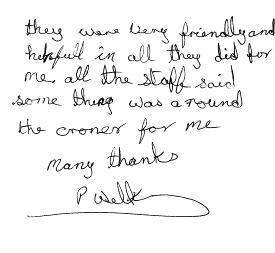 they were very friendly and
helpfull in all they did for
me. all the staff said
some thing was around
the croner for me
many thanks
P Welk